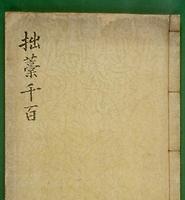 拙藁千百